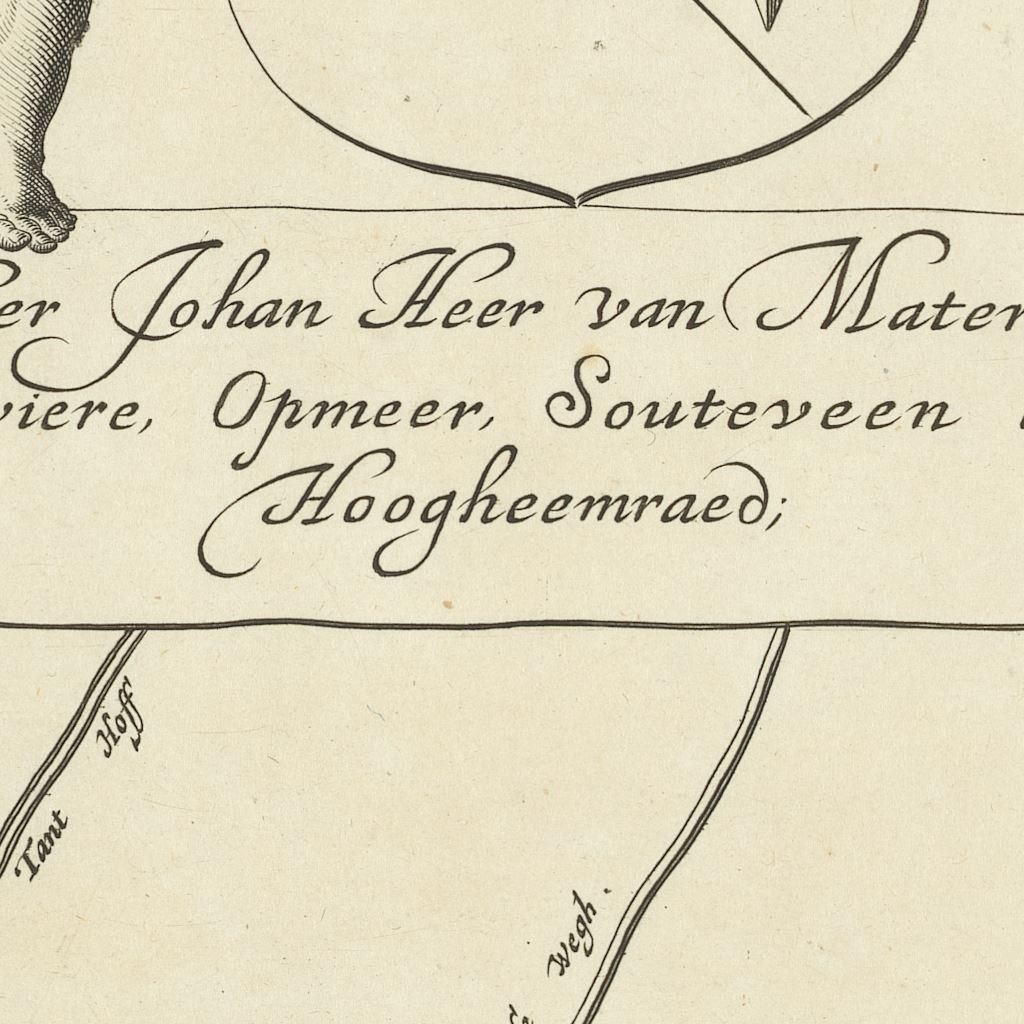 er Johan Heer van Mater
viere, Opmeer, Souteveen
Hoogheemraed;
Hoff
Tant
Wegh.